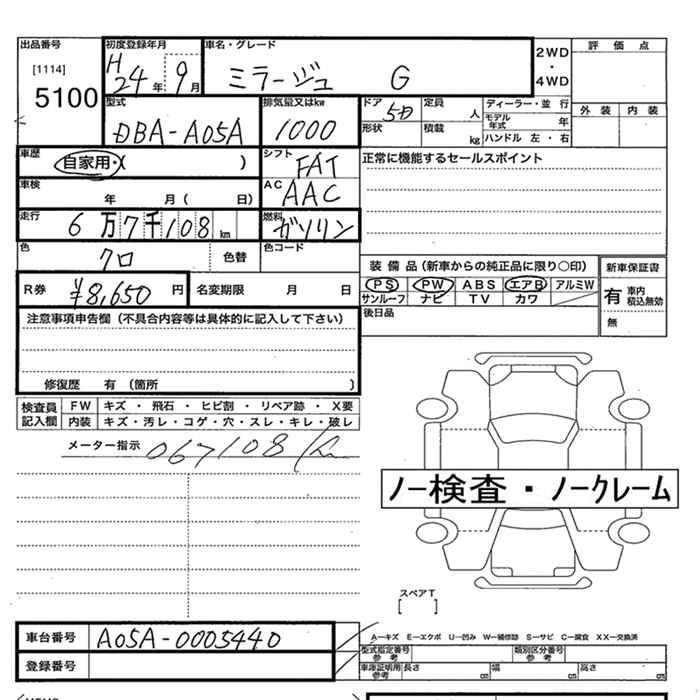 出品番号 初度登録年月 車名・グレード 2WD 評価点
[1114] H24年9月 ミラージュ G ・
5100 4WD
型式 排気量又はkw ドア 5D 定員 人 ディーラー・並行 外装 内装
DBA-A05A 1000 形状 積載 kg モデル年式 年
ハンドル 左・右
車歴 自家用・( ) シフト FAT 正常に機能するセールスポイント
車検 年 月( 日) AC AAC
走行 6万7千108km 燃料 ガソリン
色 クロ 色替 色コード
装備品(新車からの純正品に限り〇印) 新車保証書
R券 ¥8,650円 名変期限 月 日 PS PW ABS エアB アルミW 有 車内積込無効
サンルーフ ナビ TV カワ
注意事項申告欄(不具合内容等は具体的に記入して下さい) 後日品 無
修復歴 有(箇所 )
検査員記入欄 FW キズ・飛石・ヒビ割・リペア跡・X要
内装 キズ・汚レ・コゲ・穴・スレ・キレ・破レ
メーター指示 067108 km
ノー検査・ノークレーム
スペアT
[ ]
車台番号 A05A-0005440 A―キズ E―エクボ U―凹み W―補修跡 S―サビ C―腐食 XX―交換済
登録番号 型式指定番号 参考 類別区分番号 参考
車庫証明用 参考 長さ cm 幅 cm 高さ cm